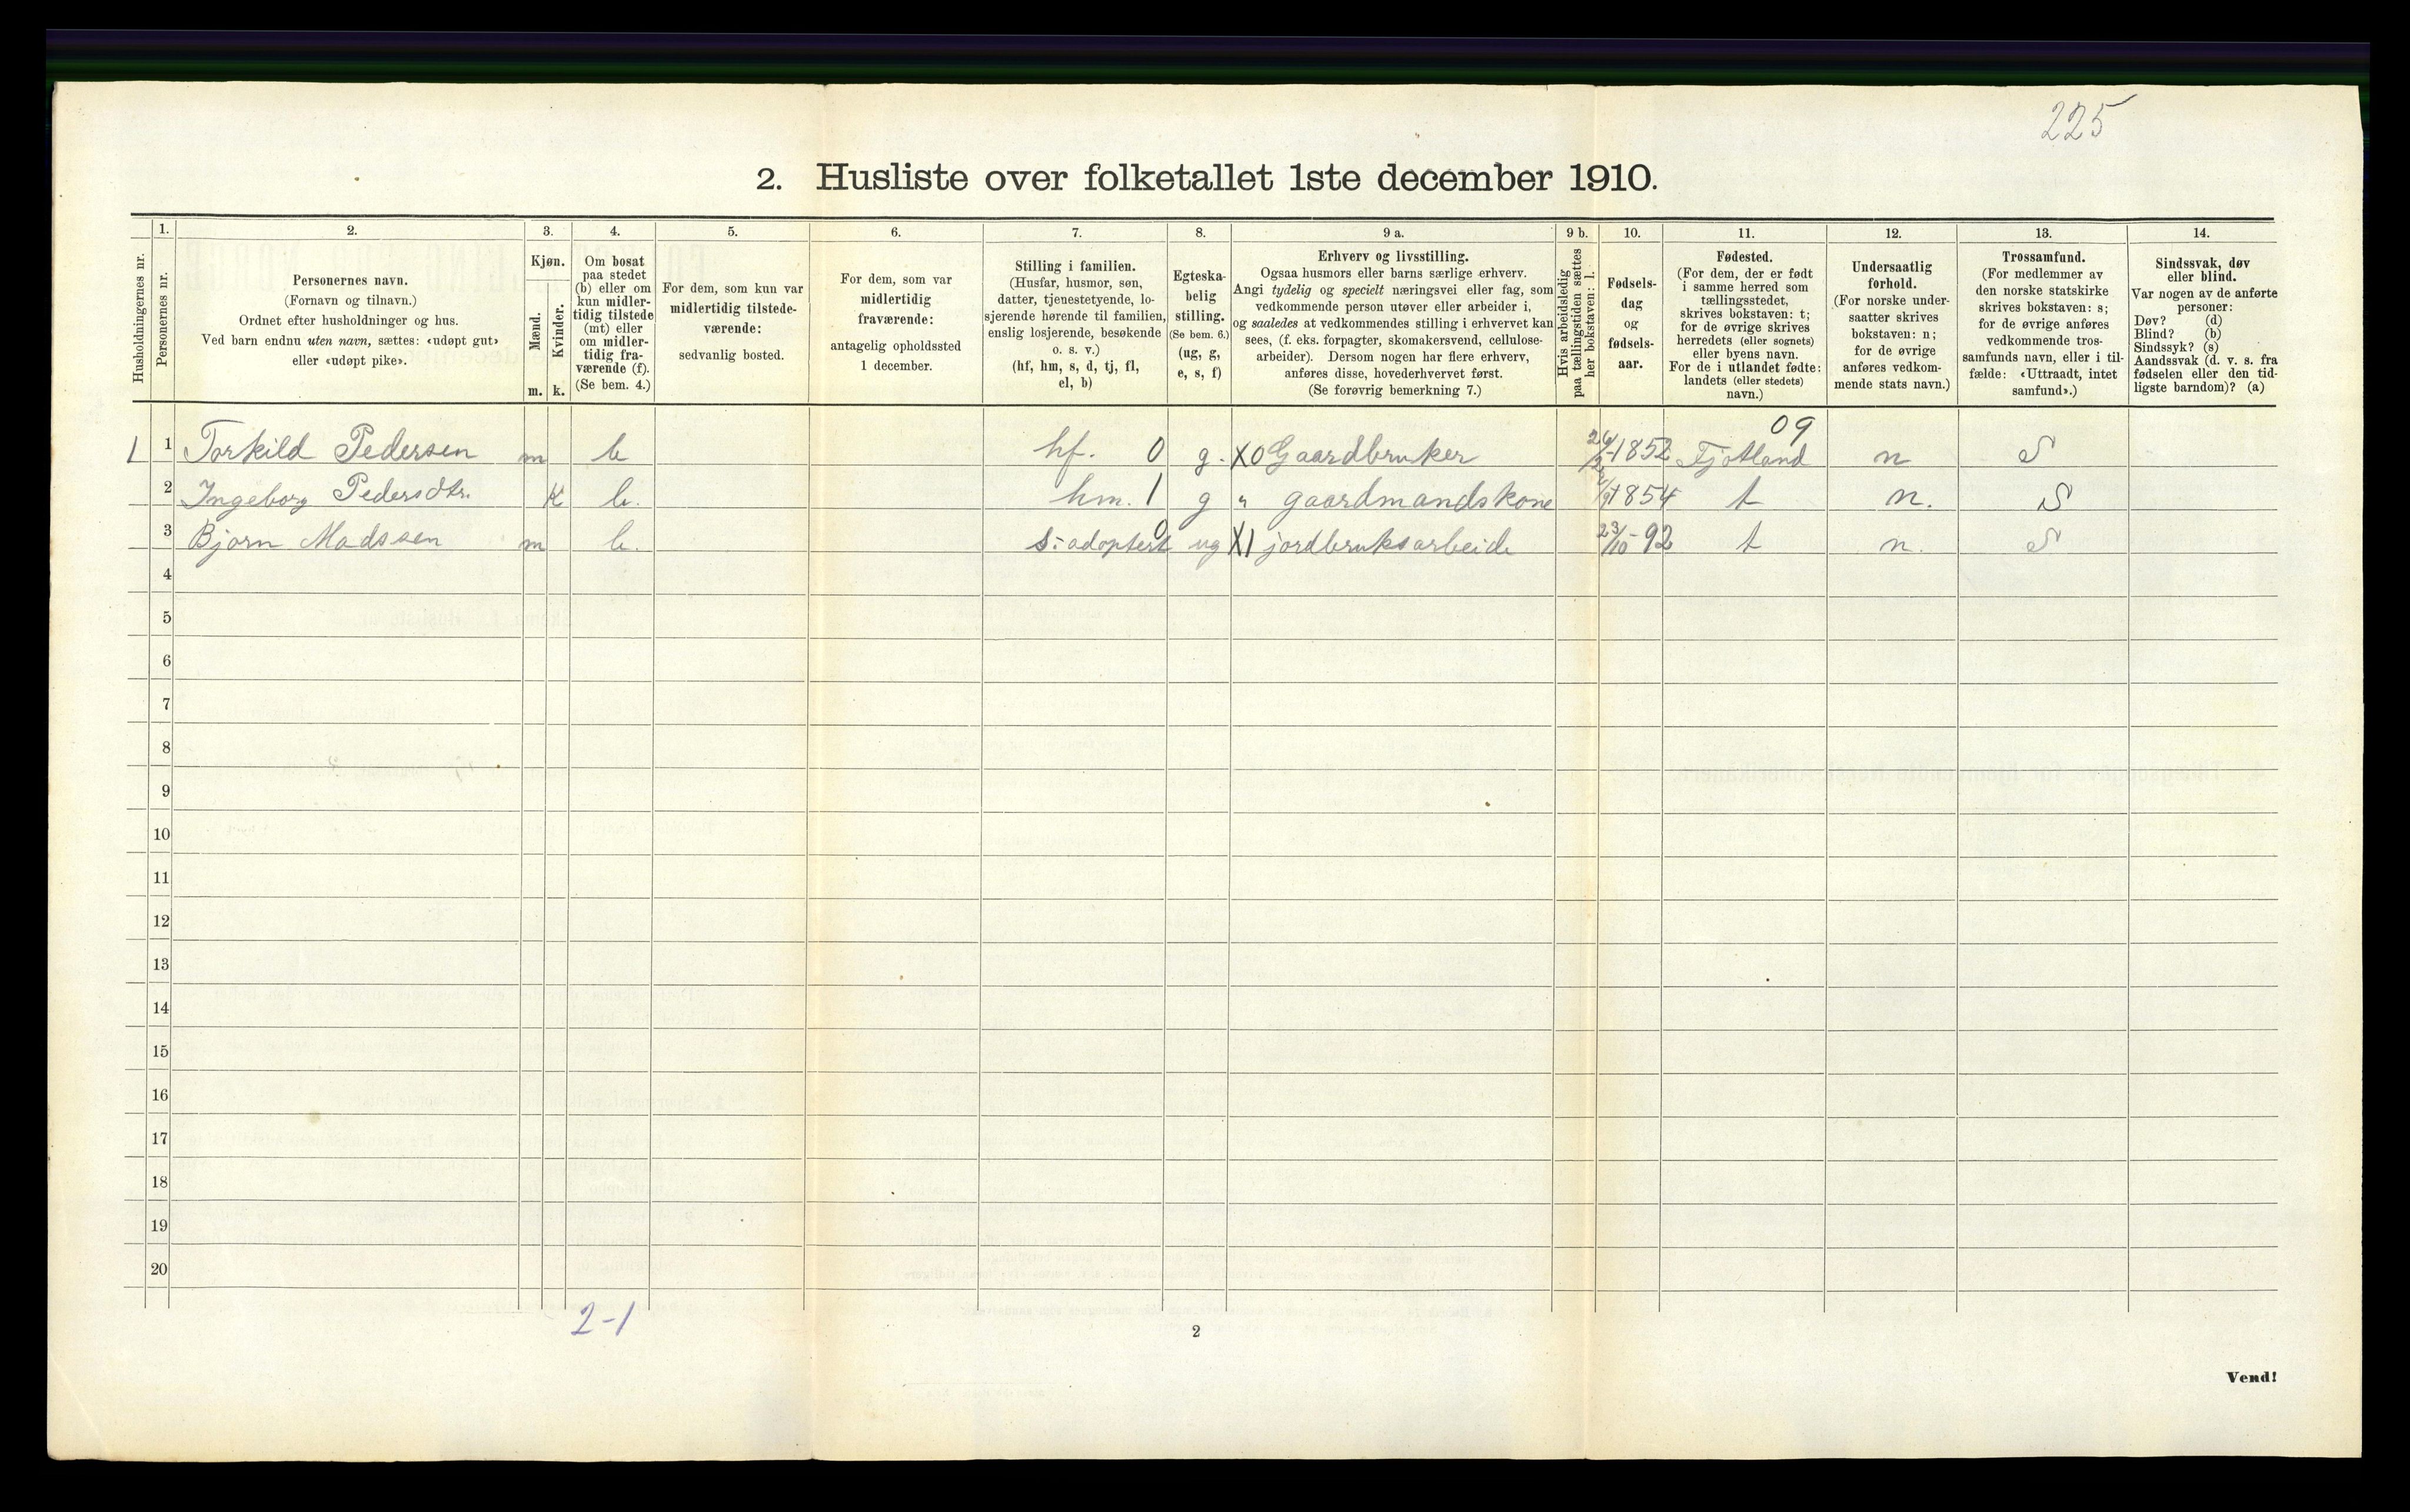 225
2. Husliste over folketallet 1ste december 1910.
Husholdningernes nr.
1.
Personernes nr.
2.
Personernes navn.
(Fornavn og tilnavn.)
Ordnet efter husholdninger og hus.
Ved barn endnu uten navn, sættes: «udøpt gut»
eller «udøpt pike».
3.
Kjøn.
Mænd.
m.
Kvinder.
k.
4.
Om bosat
paa stedet
(b) eller om
kun midler-
tidig tilstede
(mt) eller
om midler-
tidig fra-
værende (f).
(Se bem. 4.)
5.
For dem, som kun var
midlertidig tilstede-
værende:
sedvanlig bosted.
6.
For dem, som var
midlertidig
fraværende:
antagelig opholdssted
1 december.
7.
Stilling i familien.
(Husfar, husmor, søn,
datter, tjenestetyende, lo-
sjerende hørende til familien,
enslig losjerende, besøkende
o. s. v.)
(hf, hm, s, d, tj, fl,
el, b)
8.
Egteska-
belig
stilling.
(Se bem. 6.)
(ug, g,
e, s, f)
9 a.
Erhverv og livsstilling.
Ogsaa husmors eller barns særlige erhverv.
Angi tydelig og specielt næringsvei eller fag, som
vedkommende person utøver eller arbeider i,
og saaledes at vedkommendes stilling i erhvervet kan
sees, (f. eks. forpagter, skomakersvend, cellulose-
arbeider). Dersom nogen har flere erhverv,
anføres disse, hovederhvervet først.
(Se forøvrig bemerkning 7.)
9 b.
Hvis arbeidsledig
paa tællingstiden sættes
her bokstaven: l.
10.
Fødsels-
dag
og
fødsels-
aar.
11.
Fødested.
(For dem, der er født
i samme herred som
tællingsstedet,
skrives bokstaven: t;
for de øvrige skrives
herredets (eller sognets)
eller byens navn.
For de i utlandet fødte:
landets (eller stedets)
navn.)
12.
Undersaatlig
forhold.
(For norske under-
saatter skrives
bokstaven: n;
for de øvrige
anføres vedkom-
mende stats navn.)
13.
Trossamfund.
(For medlemmer av
den norske statskirke
skrives bokstaven: s;
for de øvrige anføres
vedkommende tros-
samfunds navn, eller i til-
fælde: «Uttraadt, intet
samfund».)
14.
Sindssvak, døv
eller blind.
Var nogen av de anførte
personer:
Døv? (d)
Blind? (b)
Sindssyk? (s)
Aandssvak (d. v. s. fra
fødselen eller den tid-
ligste barndom)? (a)
09
1 1 Torkild Pedersen m b hf. 0 g. X0 Gaardbruker 1852 Fjotland n S
2 Ingeborg Pedersdtr. K b. hm. 1 g " gaardmandskone 1854 t n. S
3 Bjorn Madssen m b. s: adoptert 0 ug X1 jordbruksarbeide 23/10-92 t n. S
4
5
6
7
8
9
10
11
12
13
14
15
16
17
18
19
20
2-1
2
Vend!